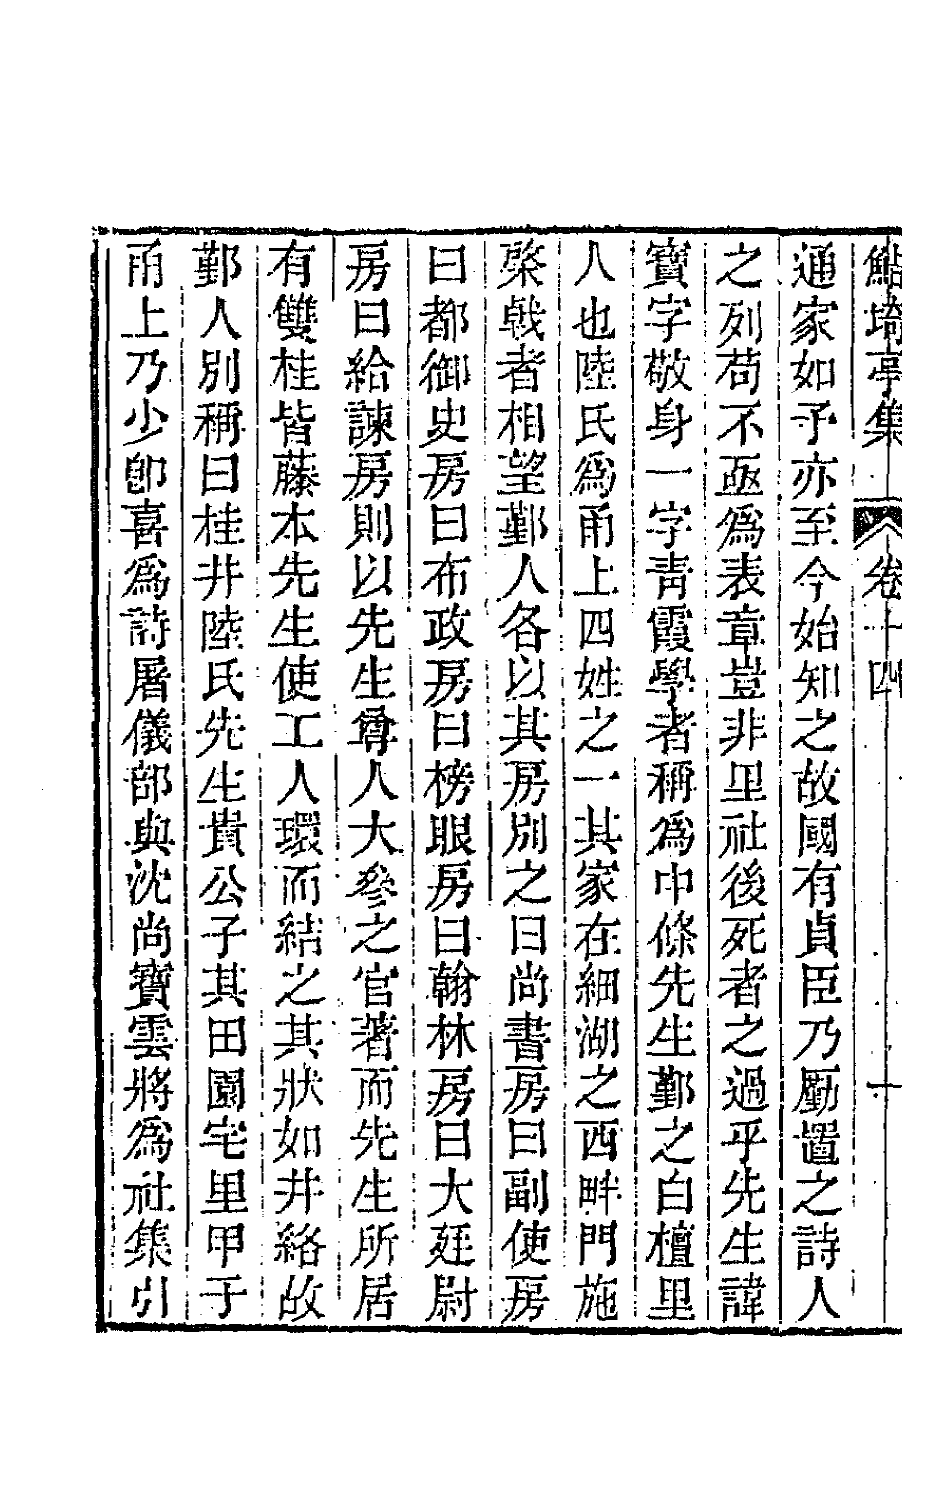 鮚埼亭集 卷十四 十
通家如予亦至今始知之故國有貞臣乃勵置之詩人
之列苟不亟爲表章豈非里社後死者之過乎先生諱
寶字敬身一字靑霞學者稱爲中條先生鄞之白檀里
人也陸氏爲甬上四姓之一其家在細湖之西畔門施
棨戟者相望鄞人各以其房別之曰尚書房曰副使房
曰都御史房曰布政房曰榜眼房曰翰林房曰大廷尉
房曰給諫房則以先生尊人大參之官著而先生所居
有雙桂皆藤本先生使工人環而結之其狀如井絡故
鄞人別稱曰桂井陸氏先生貴公子其田園宅里甲于
甬上乃少卽喜爲詩屠儀部與沈尚寶雲將爲社集引